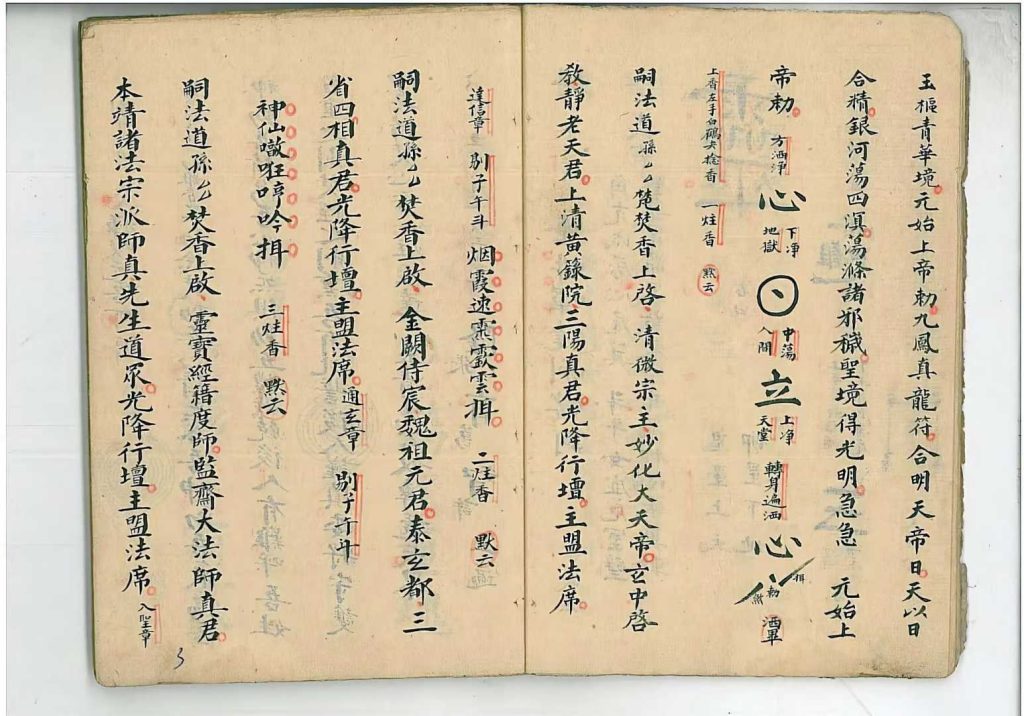 玉樞青華境元始上帝勅九鳳真龍符合明天帝日天以日
合精銀河蕩四溟蕩滌諸邪穢聖境得光明急急 元始上
帝勅 方洒淨 心 下淨地獄 中蕩人間 立 上淨天堂 轉身遍洒 心 勅 洒畢
上香左手白鶴訣捻香 一炷香 默云
嗣法道孫 焚香上啓清微宗主妙化大天帝玄中啓
教靜老天君上清黃籙院三陽真君光降行壇主盟法席
達信章 剔子午斗 烟霞速 雲揖 二炷香 默云
嗣法道孫 焚香上啟金闕侍宸魏祖元君泰玄都三
省四相真君光降行壇主盟法席 通玄章 剔子午斗
神仙 哼吟揖 三炷香 默云
嗣法道孫 焚香上啟靈寶經籍度師監齋大法師真君
本靖諸法宗派師真先生道眾光降行壇主盟法席 入聖章
3